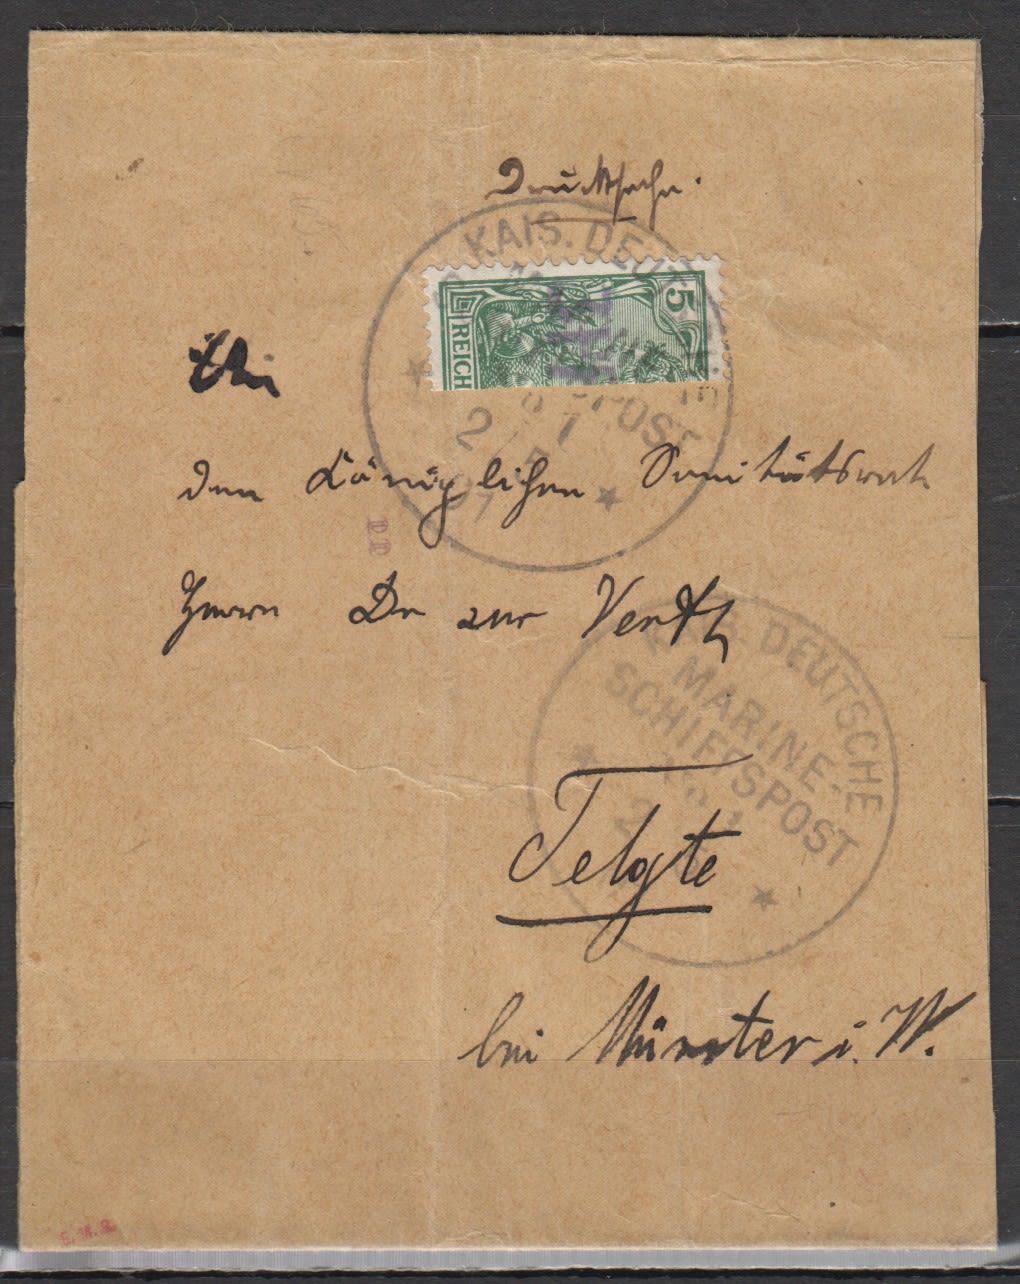 Drucksache.
KAIS. DEUT
5
REICH
POST
2/5
07
An
den Königlichen Sanitätsrat
DD
Herrn Dr zur Verth
S. DEUTSCHE
MARINE-
SCHIFFSPOST
2
Telgte
bei Münster i. W.